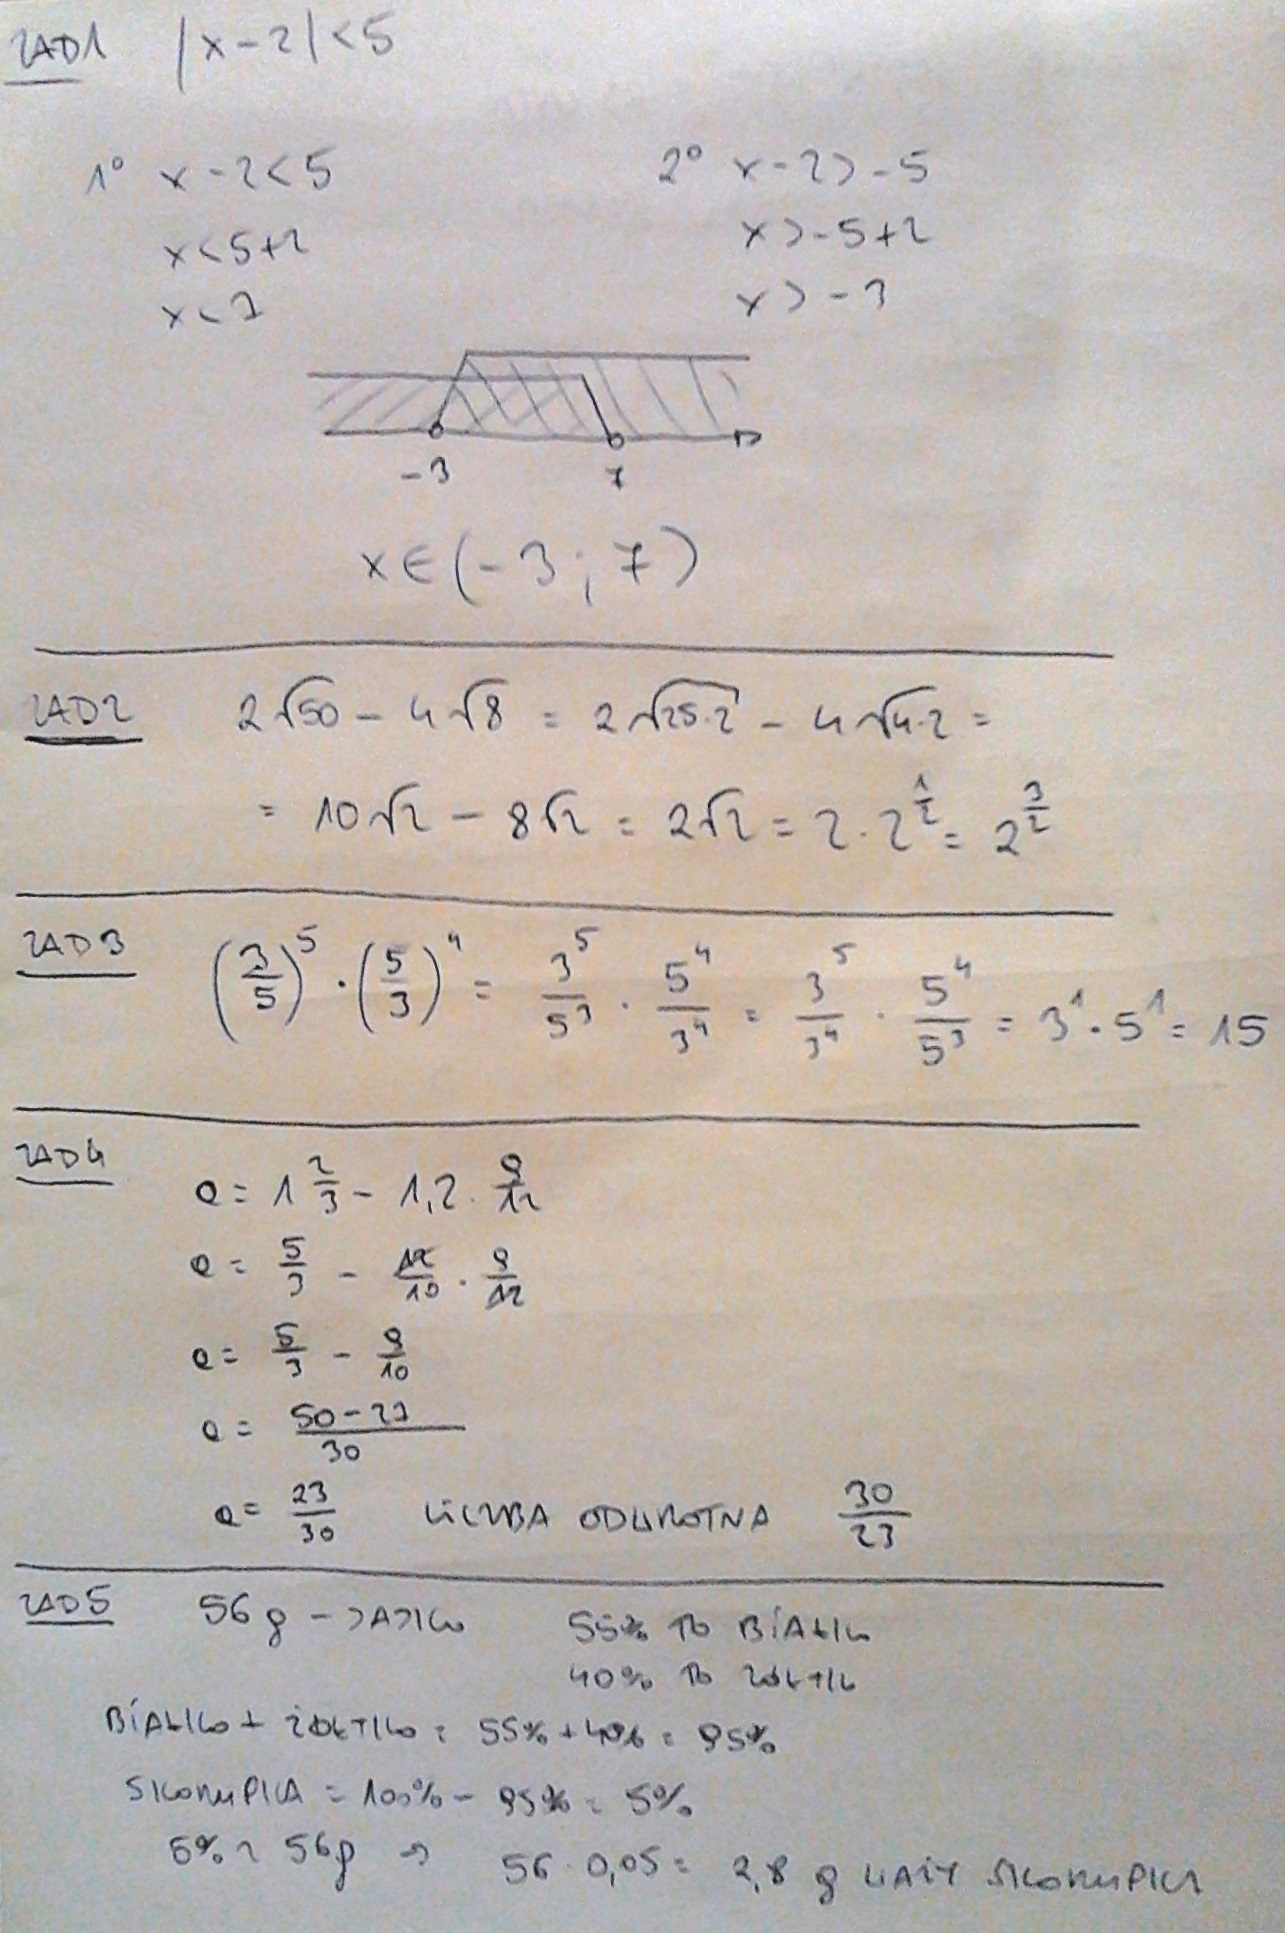 ZAD1 |x-2|<5
1° x-2<5 2° x-2>-5
x<5+2 x>-5+2
x<7 x>-3
-3 7
x∈(-3;7)
ZAD2 2√50 - 4√8 = 2√25·2 - 4√4·2 =
= 10√2 - 8√2 = 2√2 = 2·2^(1/2) = 2^(3/2)
ZAD3 (3/5)^5 · (5/3)^4 = 3^5/5^3 · 5^4/3^4 = 3^5/3^4 · 5^4/5^3 = 3^1 · 5^1 = 15
ZAD4
a = 1 2/3 - 1,2 · 9/12
a = 5/3 - 12/10 · 9/12
a = 5/3 - 9/10
a = (50-27)/30
a = 23/30 LICZBA ODWROTNA 30/23
ZAD5 56g - JAJKO 55% TO BIAŁKO
40% TO ŻÓŁTKO
BIAŁKO + ŻÓŁTKO = 55% + 40% = 95%
SKORUPKA = 100% - 95% = 5%
5% z 56g → 56·0,05 = 2,8 g WAŻY SKORUPKA